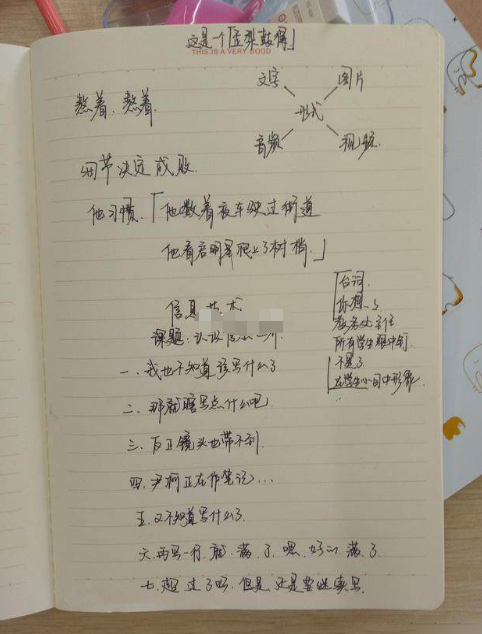 这是一个「孟梨鼓得」
THIS IS A VERY GOOD
文字 图片
形式
音频 视频
熬着,熬着
细节决定成败
他习惯「他数着夜车驶过街道
他看启明星爬上了树梢」
信息
课题:认识
台词
你想
教务处主任
所有学生眼中
不是了
在学生心目中形象
一、我也不知道该写什么了
二、那就瞎写点什么吧
三、反正镜头也带不到
四、尹柯正在作笔记...
五、又不知道写什么了
六、再写一行就满了,嗯,好心满了
七、超过了吗,但是,还是要继续写